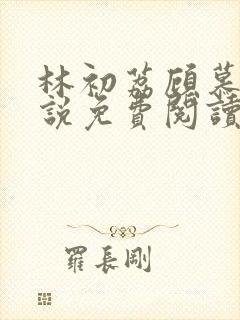 林初荔顾慕
説免費閱讀
羅長剛